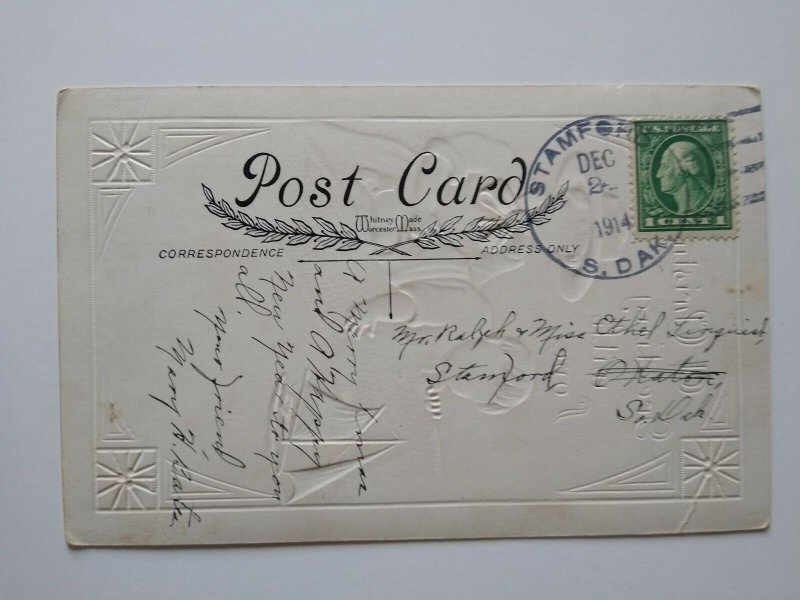 Post Card
Whitney Made
Worcester Mass.
CORRESPONDENCE
ADDRESS ONLY
STAMFORD
DEC
2
1914
S. DAK.
U.S. POSTAGE
1 CENT 1
A Merry Xmas
and A Happy
New Year to you
all.
Your friend
Mary
Mr. Ralph & Miss Ethel
Stamford,
So. Dak